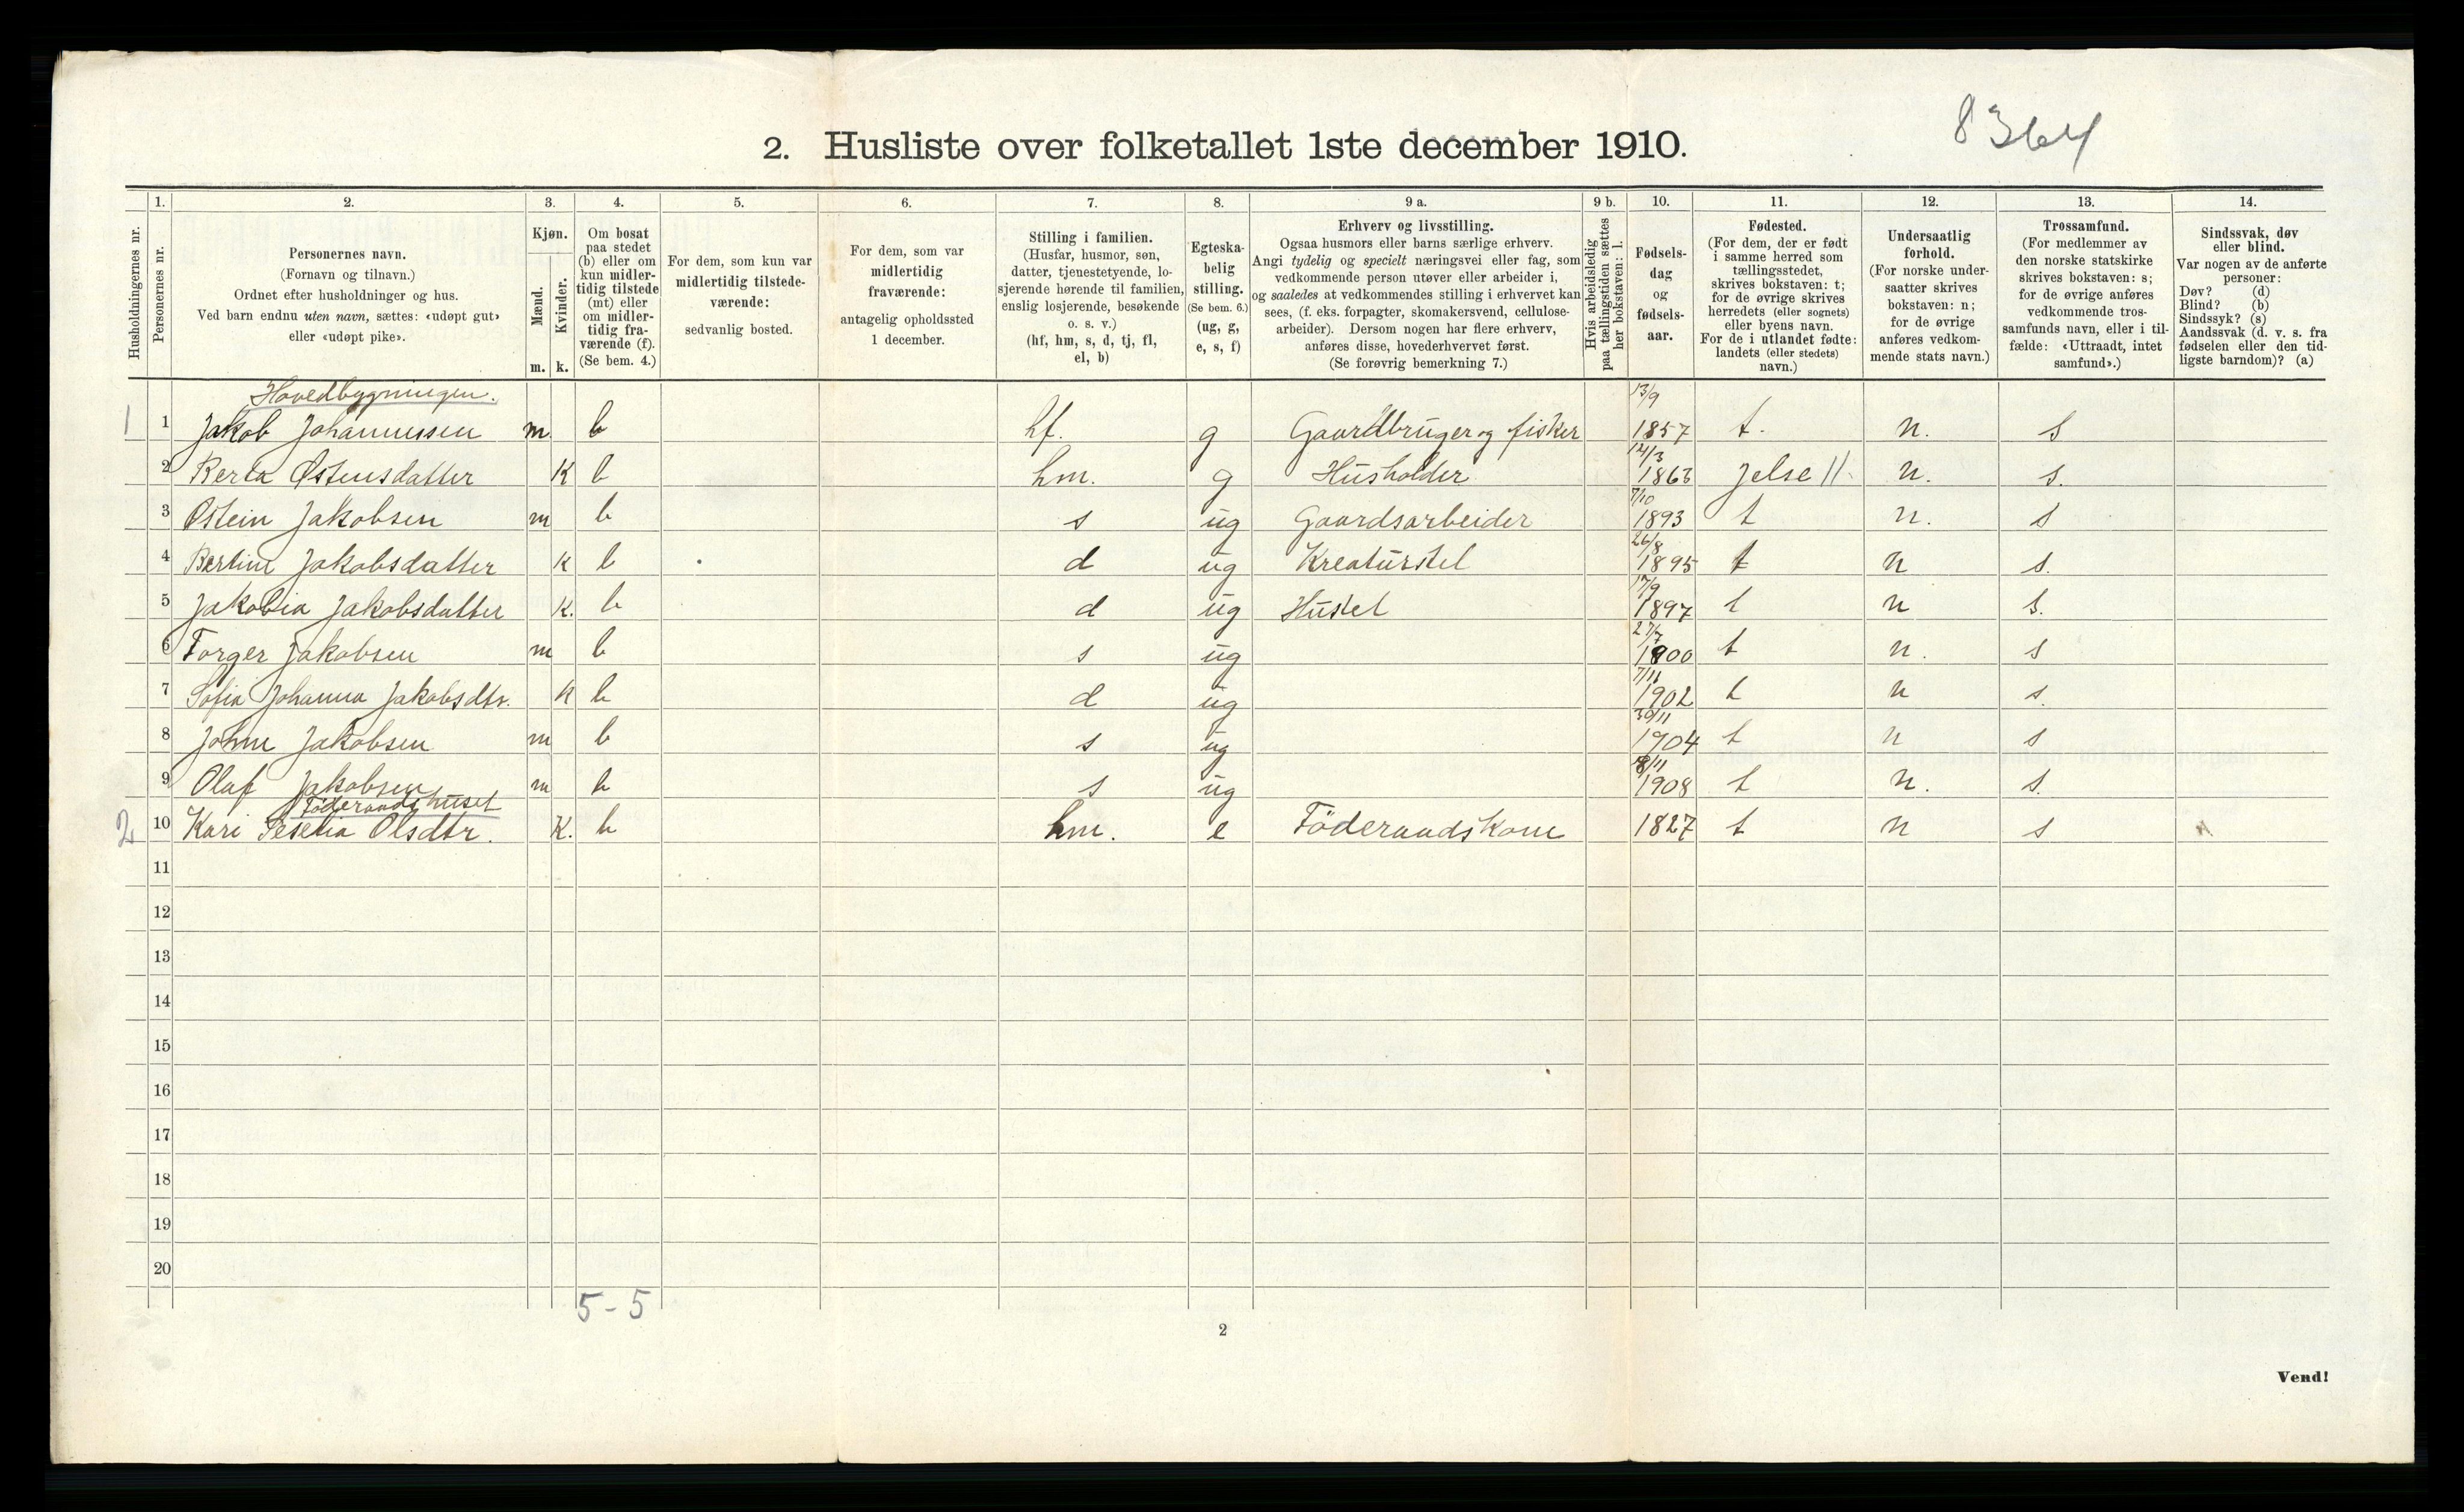 8364
2. Husliste over folketallet 1ste december 1910.
Husholdningernes nr.
1.
Personernes nr.
2.
Personernes navn.
(Fornavn og tilnavn.)
Ordnet efter husholdninger og hus.
Ved barn endnu uten navn, sættes: «udøpt gut»
eller «udøpt pike».
3.
Kjøn.
Mænd.
Kvinder.
m. k.
4.
Om bosat
paa stedet
(b) eller om
kun midler-
tidig tilstede
(mt) eller
om midler-
tidig fra-
værende (f).
(Se bem. 4.)
5.
For dem, som kun var
midlertidig tilstede-
værende:
sedvanlig bosted.
6.
For dem, som var
midlertidig
fraværende:
antagelig opholdssted
1 december.
7.
Stilling i familien.
(Husfar, husmor, søn,
datter, tjenestetyende, lo-
sjerende hørende til familien,
enslig losjerende, besøkende
o. s. v.)
(hf, hm, s, d, tj, fl,
el, b)
8.
Egteska-
belig
stilling.
(Se bem. 6.)
(ug, g,
e, s, f)
9 a.
Erhverv og livsstilling.
Ogsaa husmors eller barns særlige erhverv.
Angi tydelig og specielt næringsvei eller fag, som
vedkommende person utøver eller arbeider i,
og saaledes at vedkommendes stilling i erhvervet kan
sees, (f. eks. forpagter, skomakersvend, cellulose-
arbeider). Dersom nogen har flere erhverv,
anføres disse, hovederhvervet først.
(Se forøvrig bemerkning 7.)
9 b.
Hvis arbeidsledig
paa tællingstiden sættes
her bokstaven: l.
10.
Fødsels-
dag
og
fødsels-
aar.
11.
Fødested.
(For dem, der er født
i samme herred som
tællingsstedet,
skrives bokstaven: t;
for de øvrige skrives
herredets (eller sognets)
eller byens navn.
For de i utlandet fødte:
landets (eller stedets)
navn.)
12.
Undersaatlig
forhold.
(For norske under-
saatter skrives
bokstaven: n;
for de øvrige
anføres vedkom-
mende stats navn.)
13.
Trossamfund.
(For medlemmer av
den norske statskirke
skrives bokstaven: s;
for de øvrige anføres
vedkommende tros-
samfunds navn, eller i til-
fælde: «Uttraadt, intet
samfund».)
14.
Sindssvak, døv
eller blind.
Var nogen av de anførte
personer:
Døv? (d)
Blind? (b)
Sindssyk? (s)
Aandssvak (d. v. s. fra
fødselen eller den tid-
ligste barndom)? (a)
Hovedbygningen.
1 1 Jakob Johannessen m b hf. g Gaardbruger og fisker 13/9 1857 t. n. s
2 Berta Østensdatter K b hm. g Husholder 12/3 1863 Jelse 11 n. s.
3 Østein Jakobsen m b s ug Gaardsarbeider 7/10 1893 t n. s
4 Bertine Jakobsdatter K b d ug Kreaturstel 26/8 1895 t n s.
5 Jakobia Jakobsdatter K. b d ug Hustel 17/9 1897 t n s.
6 Torger Jakobsen m b s ug 27/7 1900 t n. s
7 Sofia Johanna Jakobsdtr. K b d ug 7/11 1902 t n s.
8 Johne Jakobsen m b s ug 30/11 1904 t n s
9 Olaf Jakobsen m b s ug 8/11 1908 t n. s.
Föderaadshuset
2 10 Kari Seselia Olsdtr. K. b hm. e Föderaadskone 1827 t n s
11
12
13
14
15
16
17
18
19
20
5-5
2
Vend!